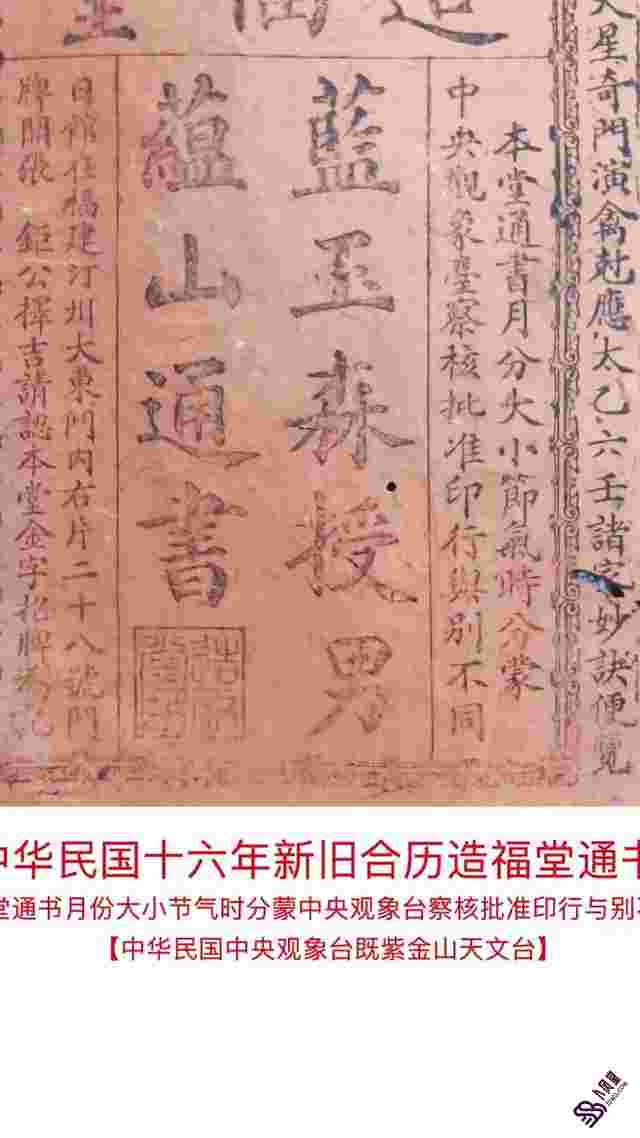 天星奇門演禽尅應太乙六壬諸家妙訣便覽
本堂通書月分大小節氣時分蒙
中央觀象臺察核批准印行與別不同
藍玉森授男
蘊山通書
日館在福建汀州大東門内右片二十八號門
牌開張 鉅公擇吉請認本堂金字招牌為記
中华民国十六年新旧合历造福堂通书
堂通书月份大小节气时分蒙中央观象台察核批准印行与别
【中华民国中央观象台既紫金山天文台】